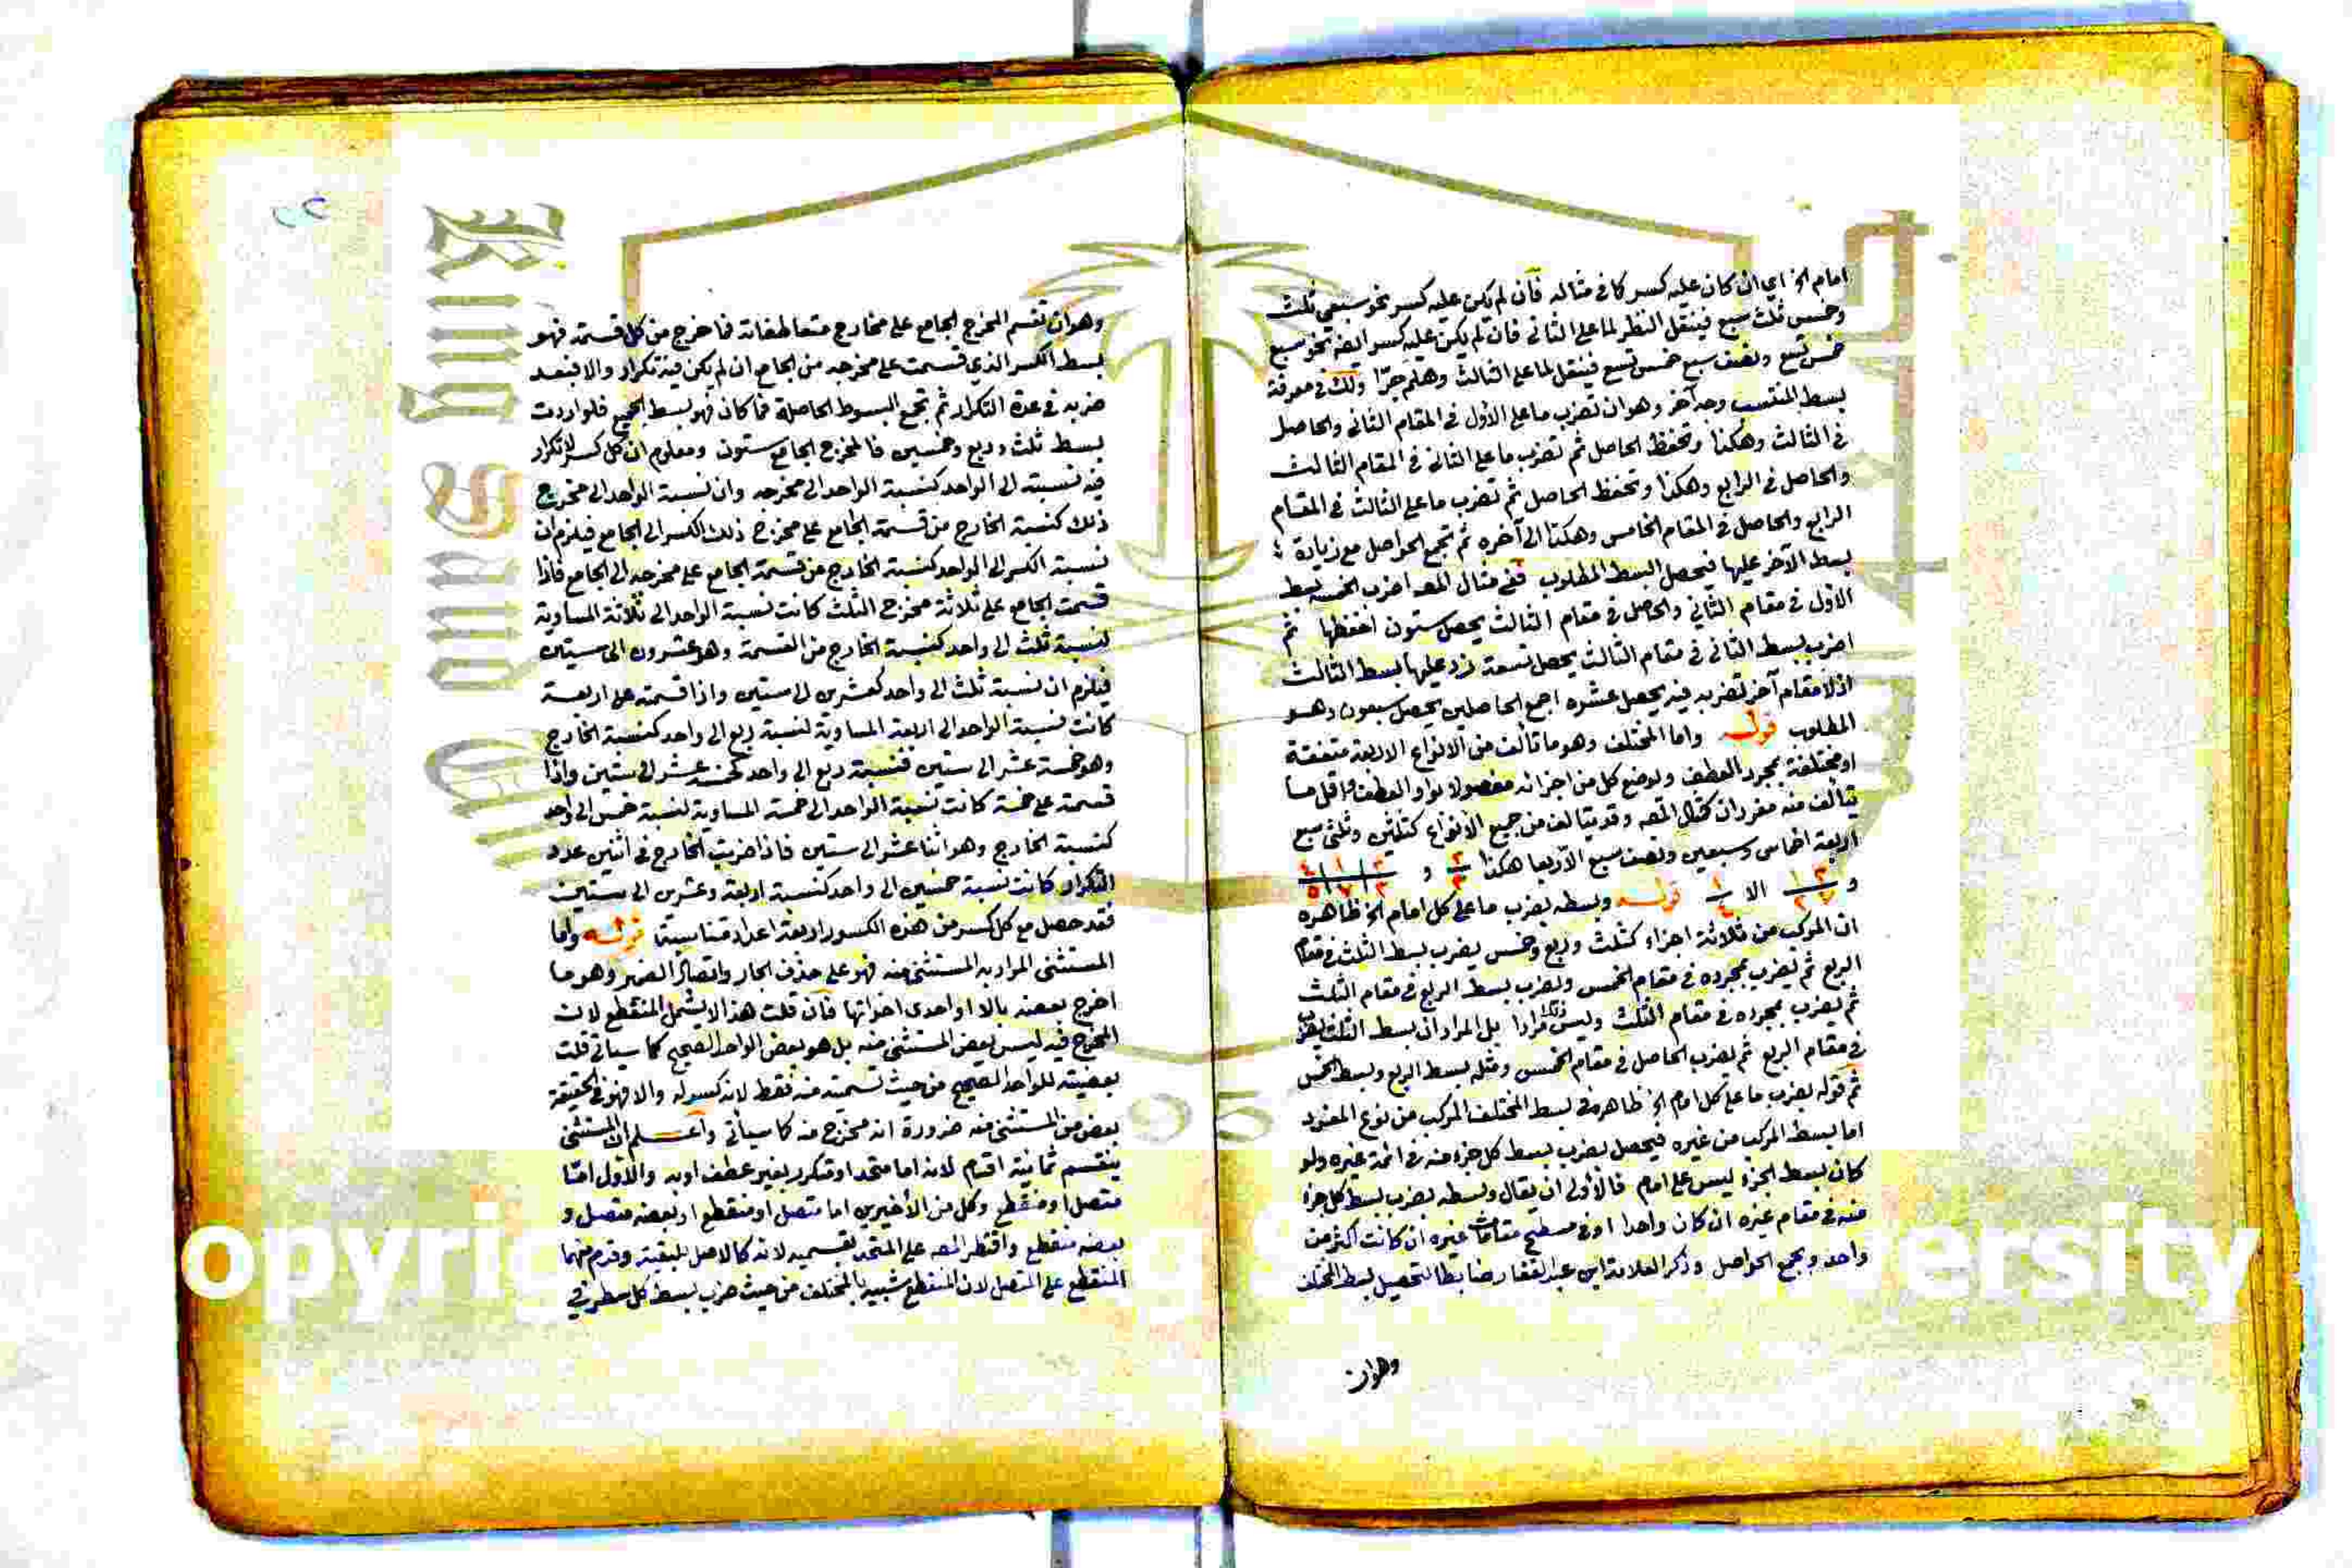 امام الخ اي ان كان عليه كسر كما في مثاله فان لم يكن عليه كسر نحو سبعي ثلث
وخمس ثلث سبع فينتقل النظر لما على الثاني فان لم يكن عليه كسر ايضه نحو سبع
خمس تسع ونصف سبع خمس تسع فينتقل لما على الثالث وهلم جرا ولك في معرفة
بسط المنتسب وجه آخر وهو ان تضرب ما على الاول في المقام الثاني والحاصل
في الثالث وهكذا وتحفظ الحاصل ثم تضرب ما على الثاني في المقام الثالث
والحاصل في الرابع وهكذا وتحفظ الحاصل ثم تضرب ما على الثالث في المقام
الرابع والحاصل في المقام الخامس وهكذا الى آخره ثم تجمع الحواصل مع زيادة
بسط الآخر عليها فيحصل البسط المطلوب ففي مثال المصه اضرب الخمسة بسط
الاول في مقام الثاني والحاصل في مقام الثالث يحصل ستون احفظها ثم
اضرب بسط الثاني في مقام الثالث يحصل تسعة زد عليها بسط الثالث
اذ لا مقام آخر تضربه فيه يحصل عشره اجمع الحاصلين يحصل سبعون وهو
المطلوب قوله واما المختلف وهو ما تألف من الانواع الاربعة متفقة
او مختلفة بمجرد العطف ويوضع كل من اجزائه مفصولا بواو العطف واقل ما
يتألف منه مفردان كمثال المصه وقد يتالف من جميع الانواع كثلثين وثلثي سبع
اربعة اخماس وسبعين ونصف سبع الا ربعا هكذا ٢/٣ و
و الا ١/٤ قوله وبسطه بضرب ما على كل امام الخ ظاهره
ان المركب من ثلاثة اجزاء كثلث وربع وخمس يضرب بسط الثلث في مقام
الربع ثم يضرب بمجرده في مقام الخمس ويضرب بسط الربع في مقام الثلث
ثم يضرب بمجرده في مقام الثلث وليس ذلك مرادا بل المراد ان بسط الثلث يضرب
في مقام الربع ثم يضرب الحاصل في مقام الخمس ومثله بسط الربع وبسط الخمس
ثم قوله بضرب ما على كل امام الخ ظاهر في بسط المختلف المركب من نوع المفرد
اما بسط المركب من غيره فيحصل بضرب بسط كل جزء منه في ائمة غيره ولو
كان بسط الجزء ليس على امام فالأولى ان يقال وبسطه بضرب بسط كل جزء
منه في مقام غيره ان كان واحدا او في مسطح مقامات غيره ان كانت اكثر من
واحد وبجمع الحواصل وذكر العلامة ابن عبد الغفار ضابطا لتحصيل بسط المختلف
وهو ان
وهو ان تقسم المخرج الجامع على مخارج متعاطفاته فما خرج من كل قسمة فهو
بسط الكسر الذي قسمت على مخرجه من الجامع ان لم يكن فيه تكرار والا فبعد
ضربه في عدة التكرار ثم تجمع البسوط الحاصلة فما كان فهو بسط الجميع فلو اردت
بسط ثلث وربع وخمسين فالمخرج الجامع ستون ومعلوم ان كل كسر لا تكرار
فيه نسبته الى الواحد كنسبة الواحد الى مخرجه وان نسبة الواحد الى مخرج
ذلك كنسبة الخارج من قسمة الجامع على مخرج ذلك الكسر الى الجامع فيلزم ان
نسبة الكسر الى الواحد كنسبة الخارج من قسمة الجامع على مخرجه الى الجامع فاذا
قسمت الجامع على ثلاثة مخرج الثلث كانت نسبة الواحد الى ثلاثة المساوية
لنسبة ثلث الى واحد كنسبة الخارج من القسمة وهو عشرون الى ستين
فيلزم ان نسبة ثلث الى واحد كعشرين الى ستين واذا قسمته على اربعة
كانت نسبة الواحد الى اربعة المساوية لنسبة ربع الى واحد كنسبة الخارج
وهو خمسة عشر الى ستين فنسبة ربع الى واحد كخمسة عشر الى ستين واذا
قسمته على خمسة كانت نسبة الواحد الى خمسة المساوية لنسبة خمس الى واحد
كنسبة الخارج وهو اثنا عشر الى ستين فاذا ضربت الخارج في اثنين عدد
التكرار كانت نسبة خمسين الى واحد كنسبة اربعة وعشرين الى ستين
فقد حصل مع كل كسر من هذه الكسور اربعة اعداد متناسبة قوله واما
المستثنى المراد به المستثنى منه فهو على حذف الجار واتصال الضمير وهو ما
اخرج بعضه بالا او احدى اخواتها فان قلت هذا لا يشمل المنقطع لان
المخرج فيه ليس بعض المستثنى منه بل هو بعض الواحد الصحيح كما سيأتي قلت
بعضيته للواحد الصحيح من حيث تسميته منه فقط لانه كسر له والا فهو في الحقيقة
بعض من المستثنى منه ضرورة انه مخرج منه كما سيأتي واعلم ان المستثنى
ينقسم ثمانية اقسام لانه اما متحد او متكرر بغير عطف او به والاول اما
متصل او منقطع وكل من الأخيرين اما متصل او منقطع او بعضه متصل و
بعضه منقطع واقتصر المصه على المتحد بقسميه لانه كالاصل للبقية وقدم منهما
المنقطع على المتصل لان المنقطع شبيه بالمختلف من حيث ضرب بسط كل سطر في